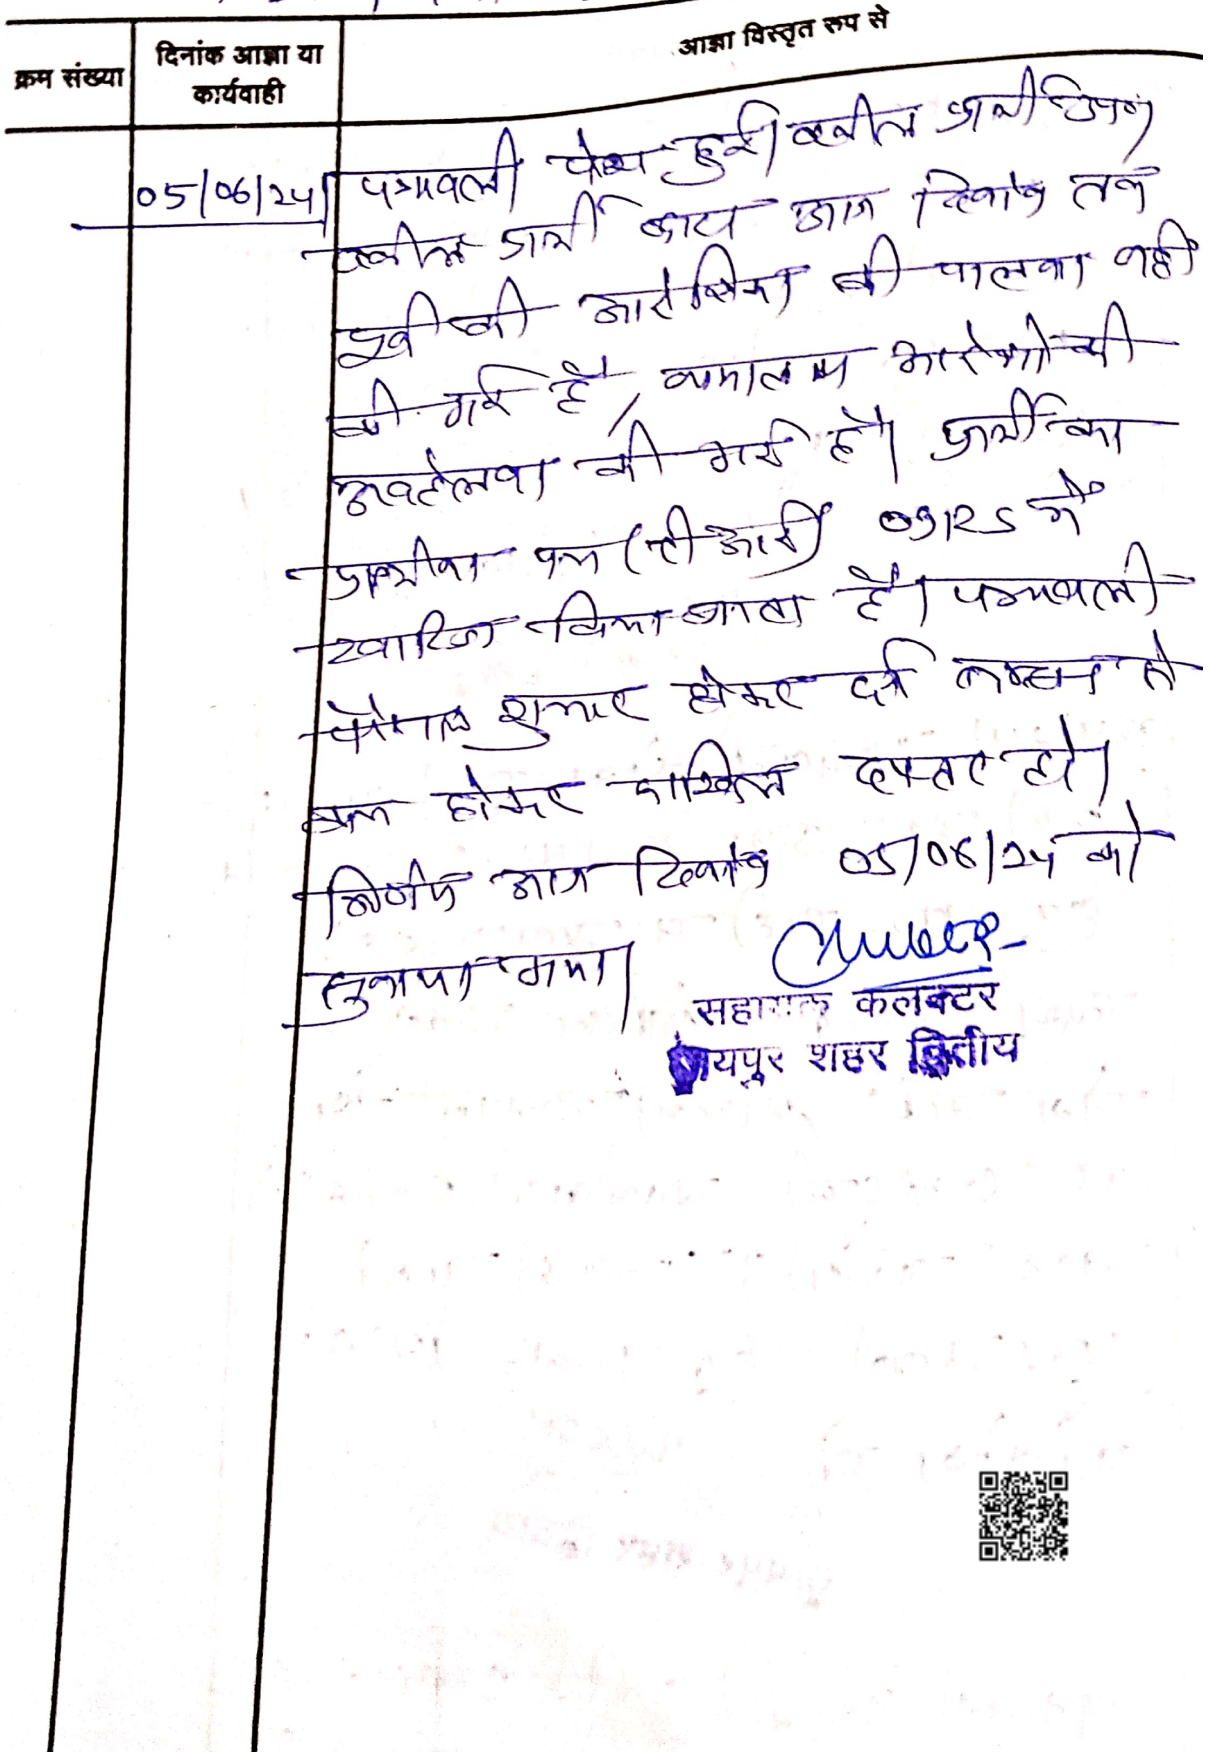 आज्ञा विस्तृत रूप से
क्रम संख्या
दिनांक आज्ञा या
कार्यवाही
05/06/24
पत्रावली पेश हुई। वकील प्रार्थी उप०
वकील प्रार्थी द्वारा आज दिनांक तक
पूर्व की आदेशिका की पालना नहीं
की गई है, न्यायालय आदेशो की
अवहेलना की गई है। प्रार्थी का
प्रार्थना पत्र (टी आई) 09/25 में
खारिज किया जाता है। पत्रावली
फैसल शुमार होकर दर्ज नम्बर से
कम होकर दाखिल दफ्तर हो।
निर्णय आज दिनांक 05/06/24 को
सुनाया गया।
सहायक कलक्टर
जयपुर शहर द्वितीय